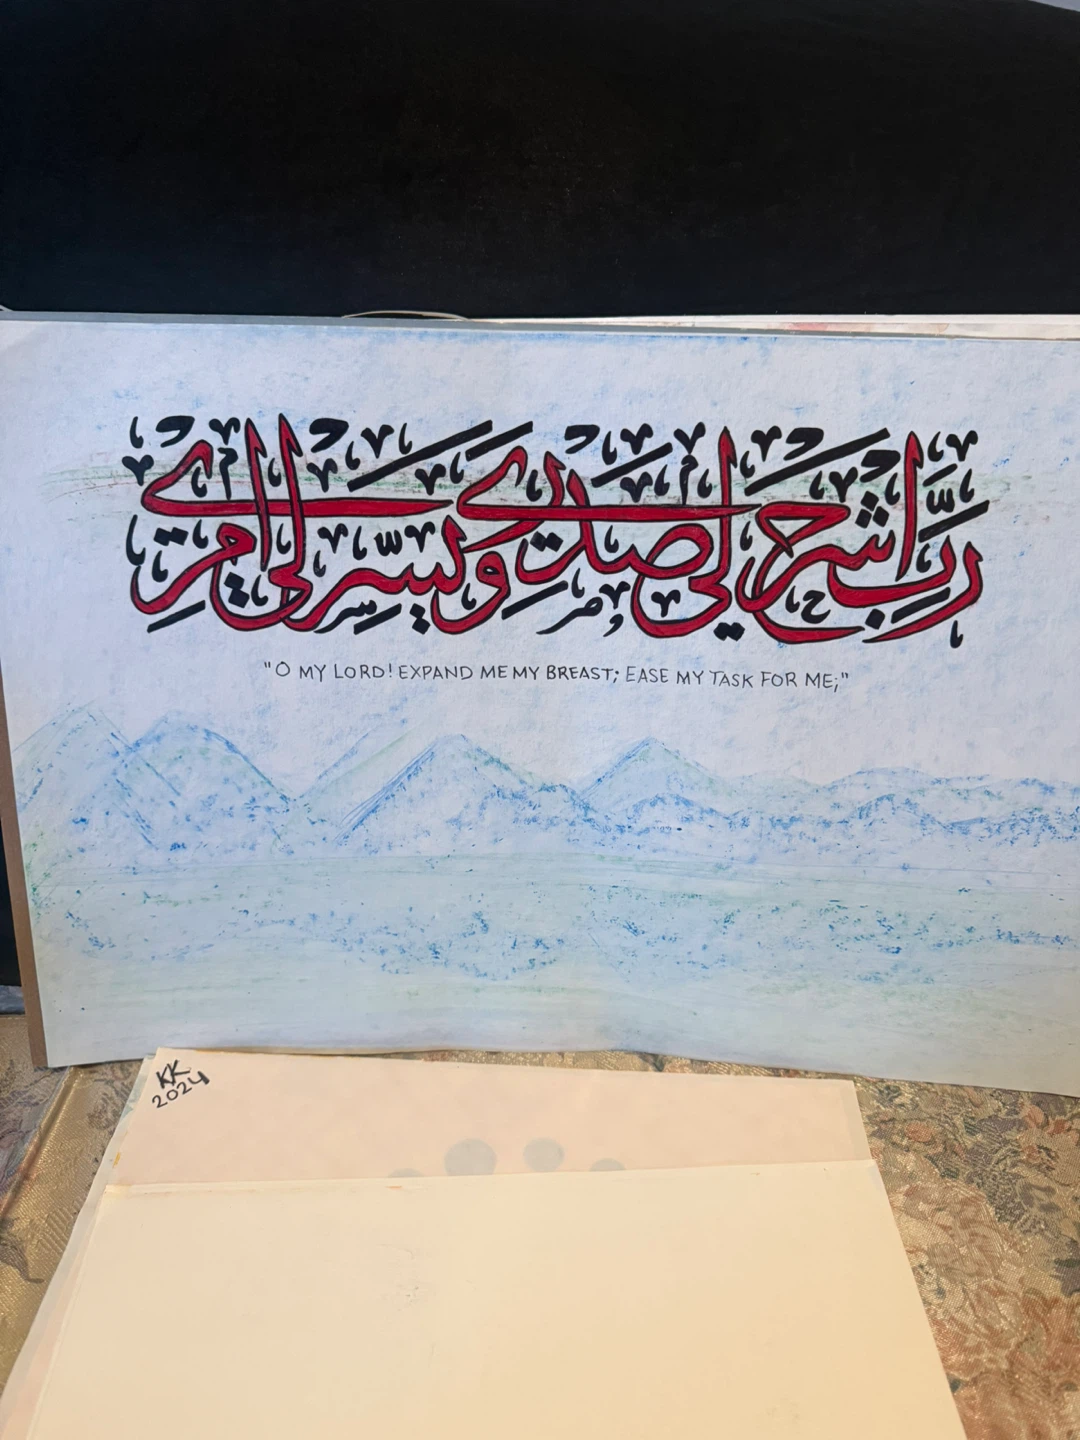 رب اشرح لي صدري ويسر لي امري
"O MY LORD! EXPAND ME MY BREAST; EASE MY TASK FOR ME;"
KK
2024